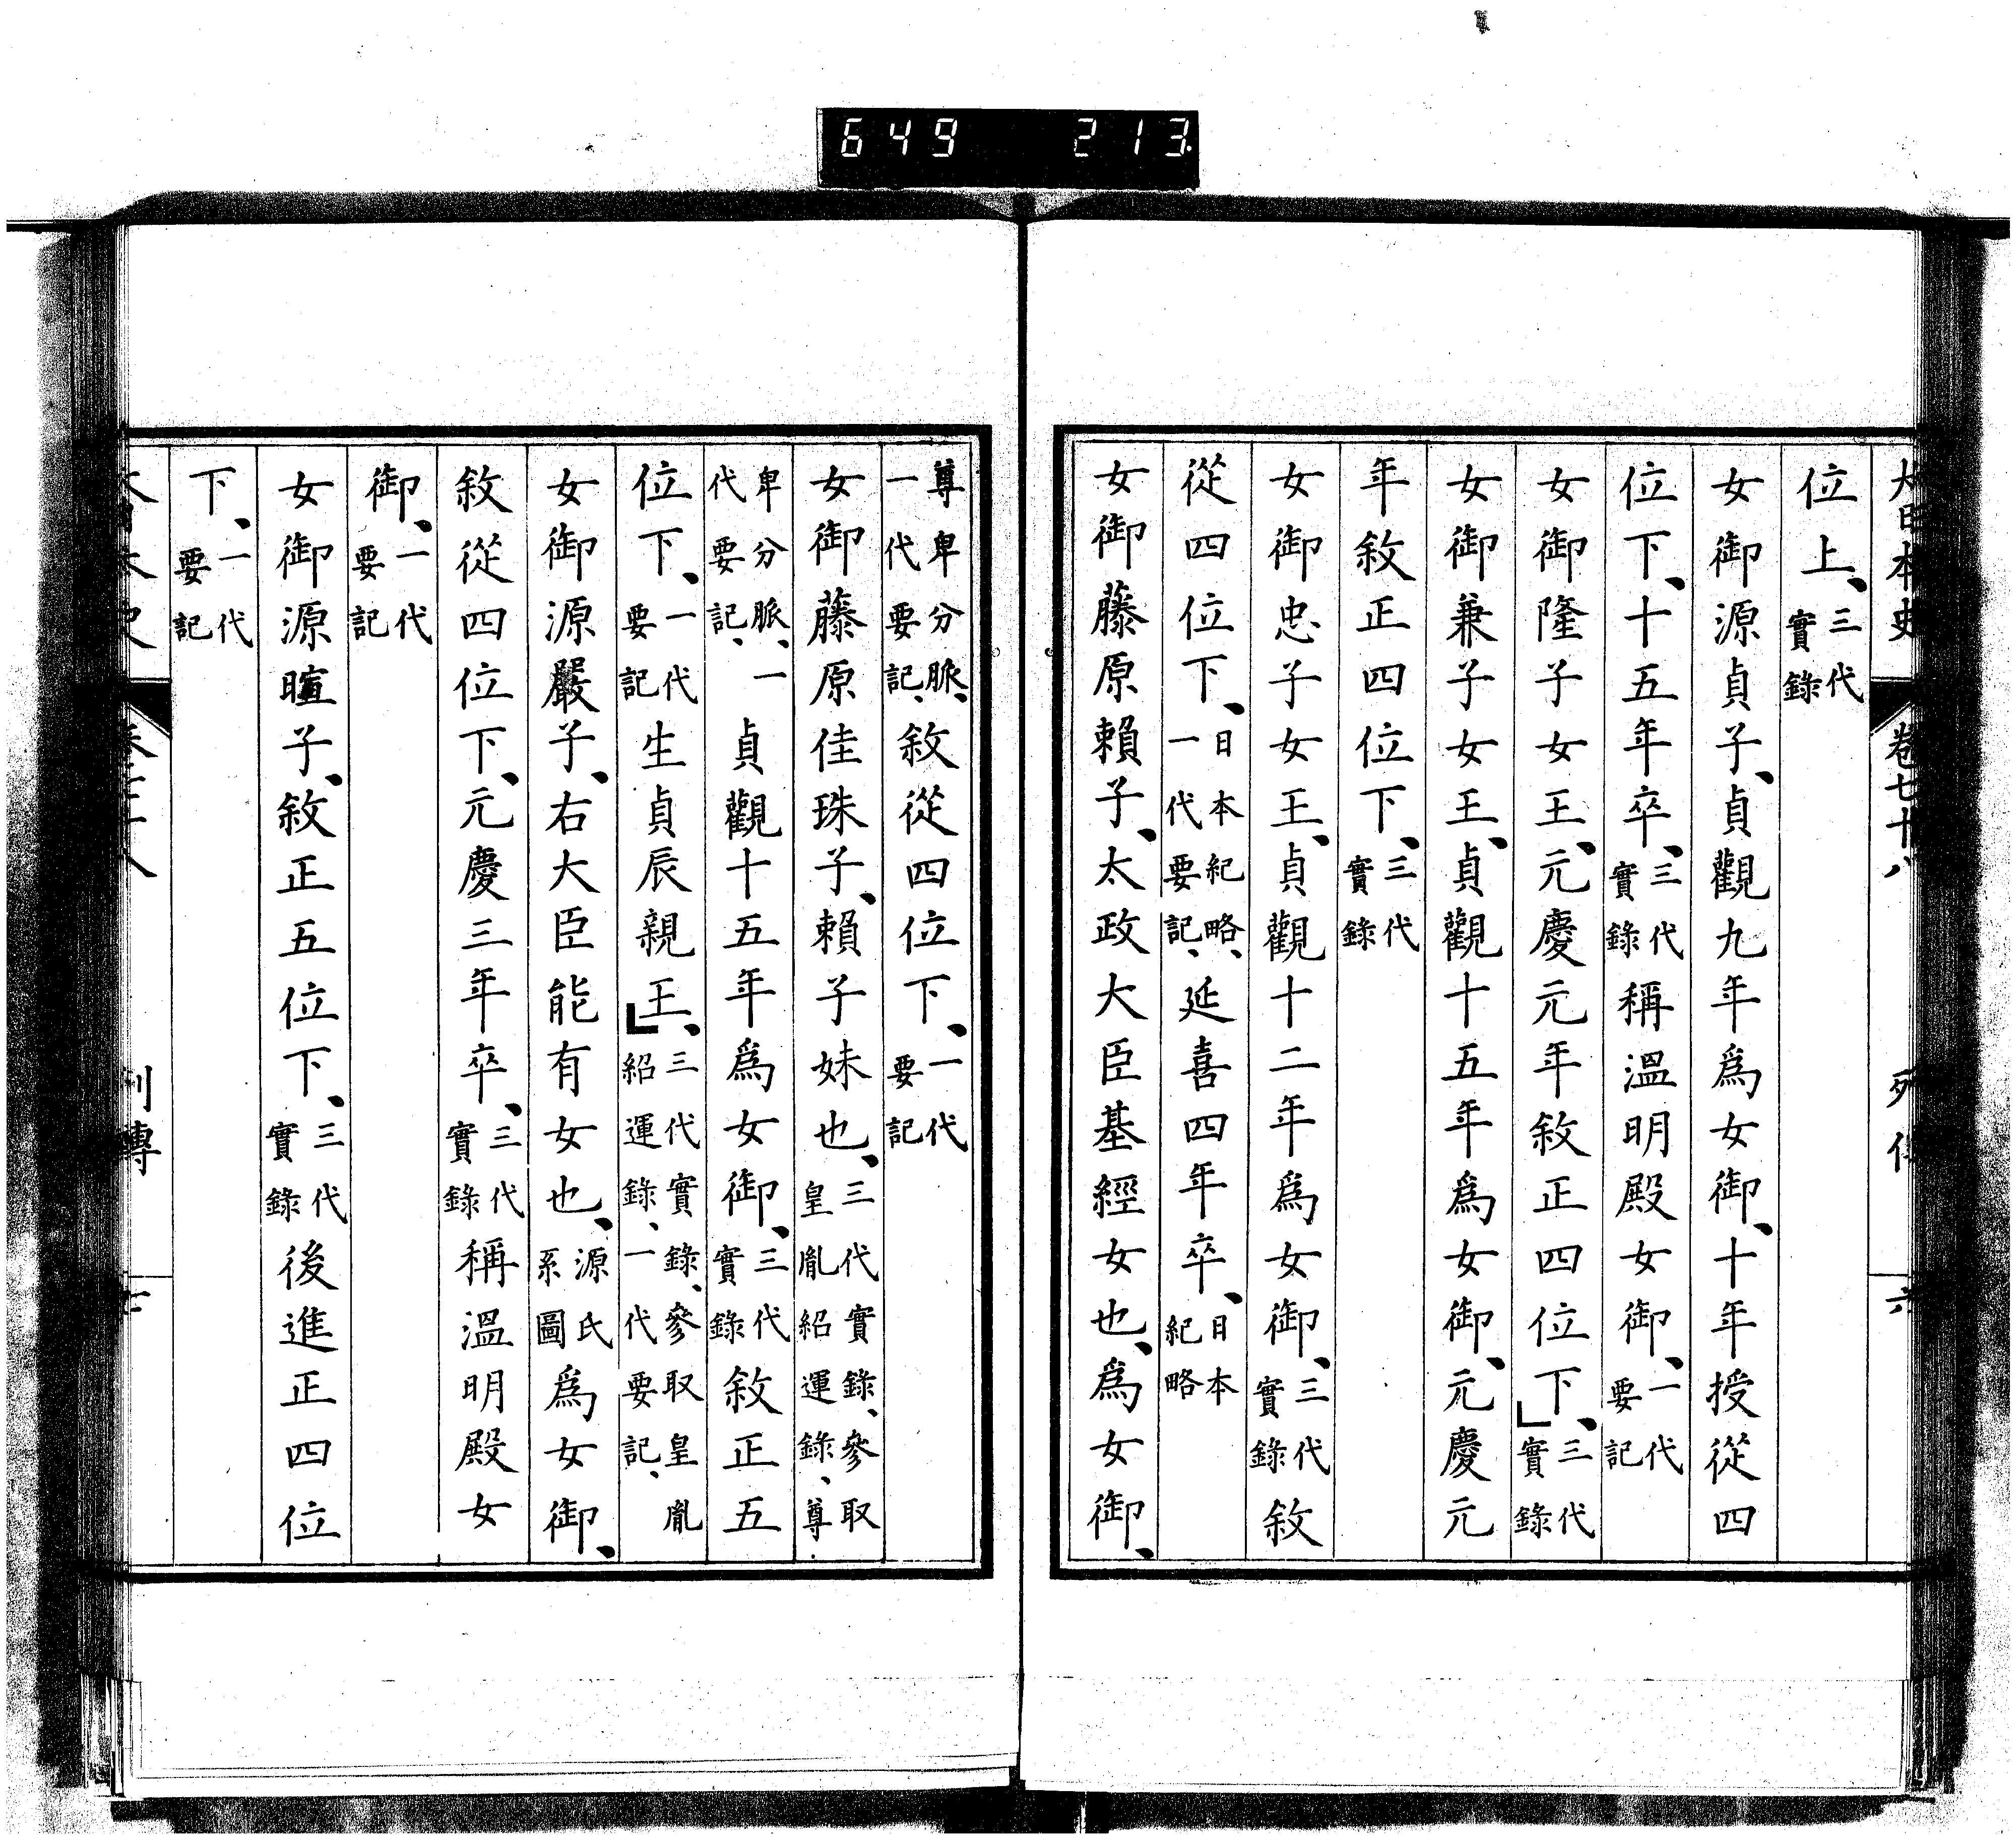 649 213.
大日本史 卷七十八 列傳 六
位上、三代實錄
女御源貞子、貞觀九年爲女御、十年授從四
位下、十五年卒、三代實錄稱溫明殿女御、一代要記
女御隆子女王、元慶元年敘正四位下、三代實錄
女御兼子女王、貞觀十五年爲女御、元慶元
年敘正四位下、三代實錄
女御忠子女王、貞觀十二年爲女御、三代實錄敘
從四位下、日本紀略、一代要記、延喜四年卒、日本紀略
女御藤原賴子、太政大臣基經女也、爲女御、
尊卑分脈、一代要記、敘從四位下、一代要記
女御藤原佳珠子、賴子妹也、三代實錄、參取皇胤紹運錄、尊
卑分脈、一代要記、貞觀十五年爲女御、三代實錄敘正五
位下、一代要記生貞辰親王、三代實錄、參取皇胤紹運錄、一代要記、
女御源嚴子、右大臣能有女也、源氏系圖爲女御、
敘從四位下、元慶三年卒、三代實錄稱溫明殿女
御、一代要記
女御源暄子、敘正五位下、三代實錄後進正四位
下、一代要記
列傳